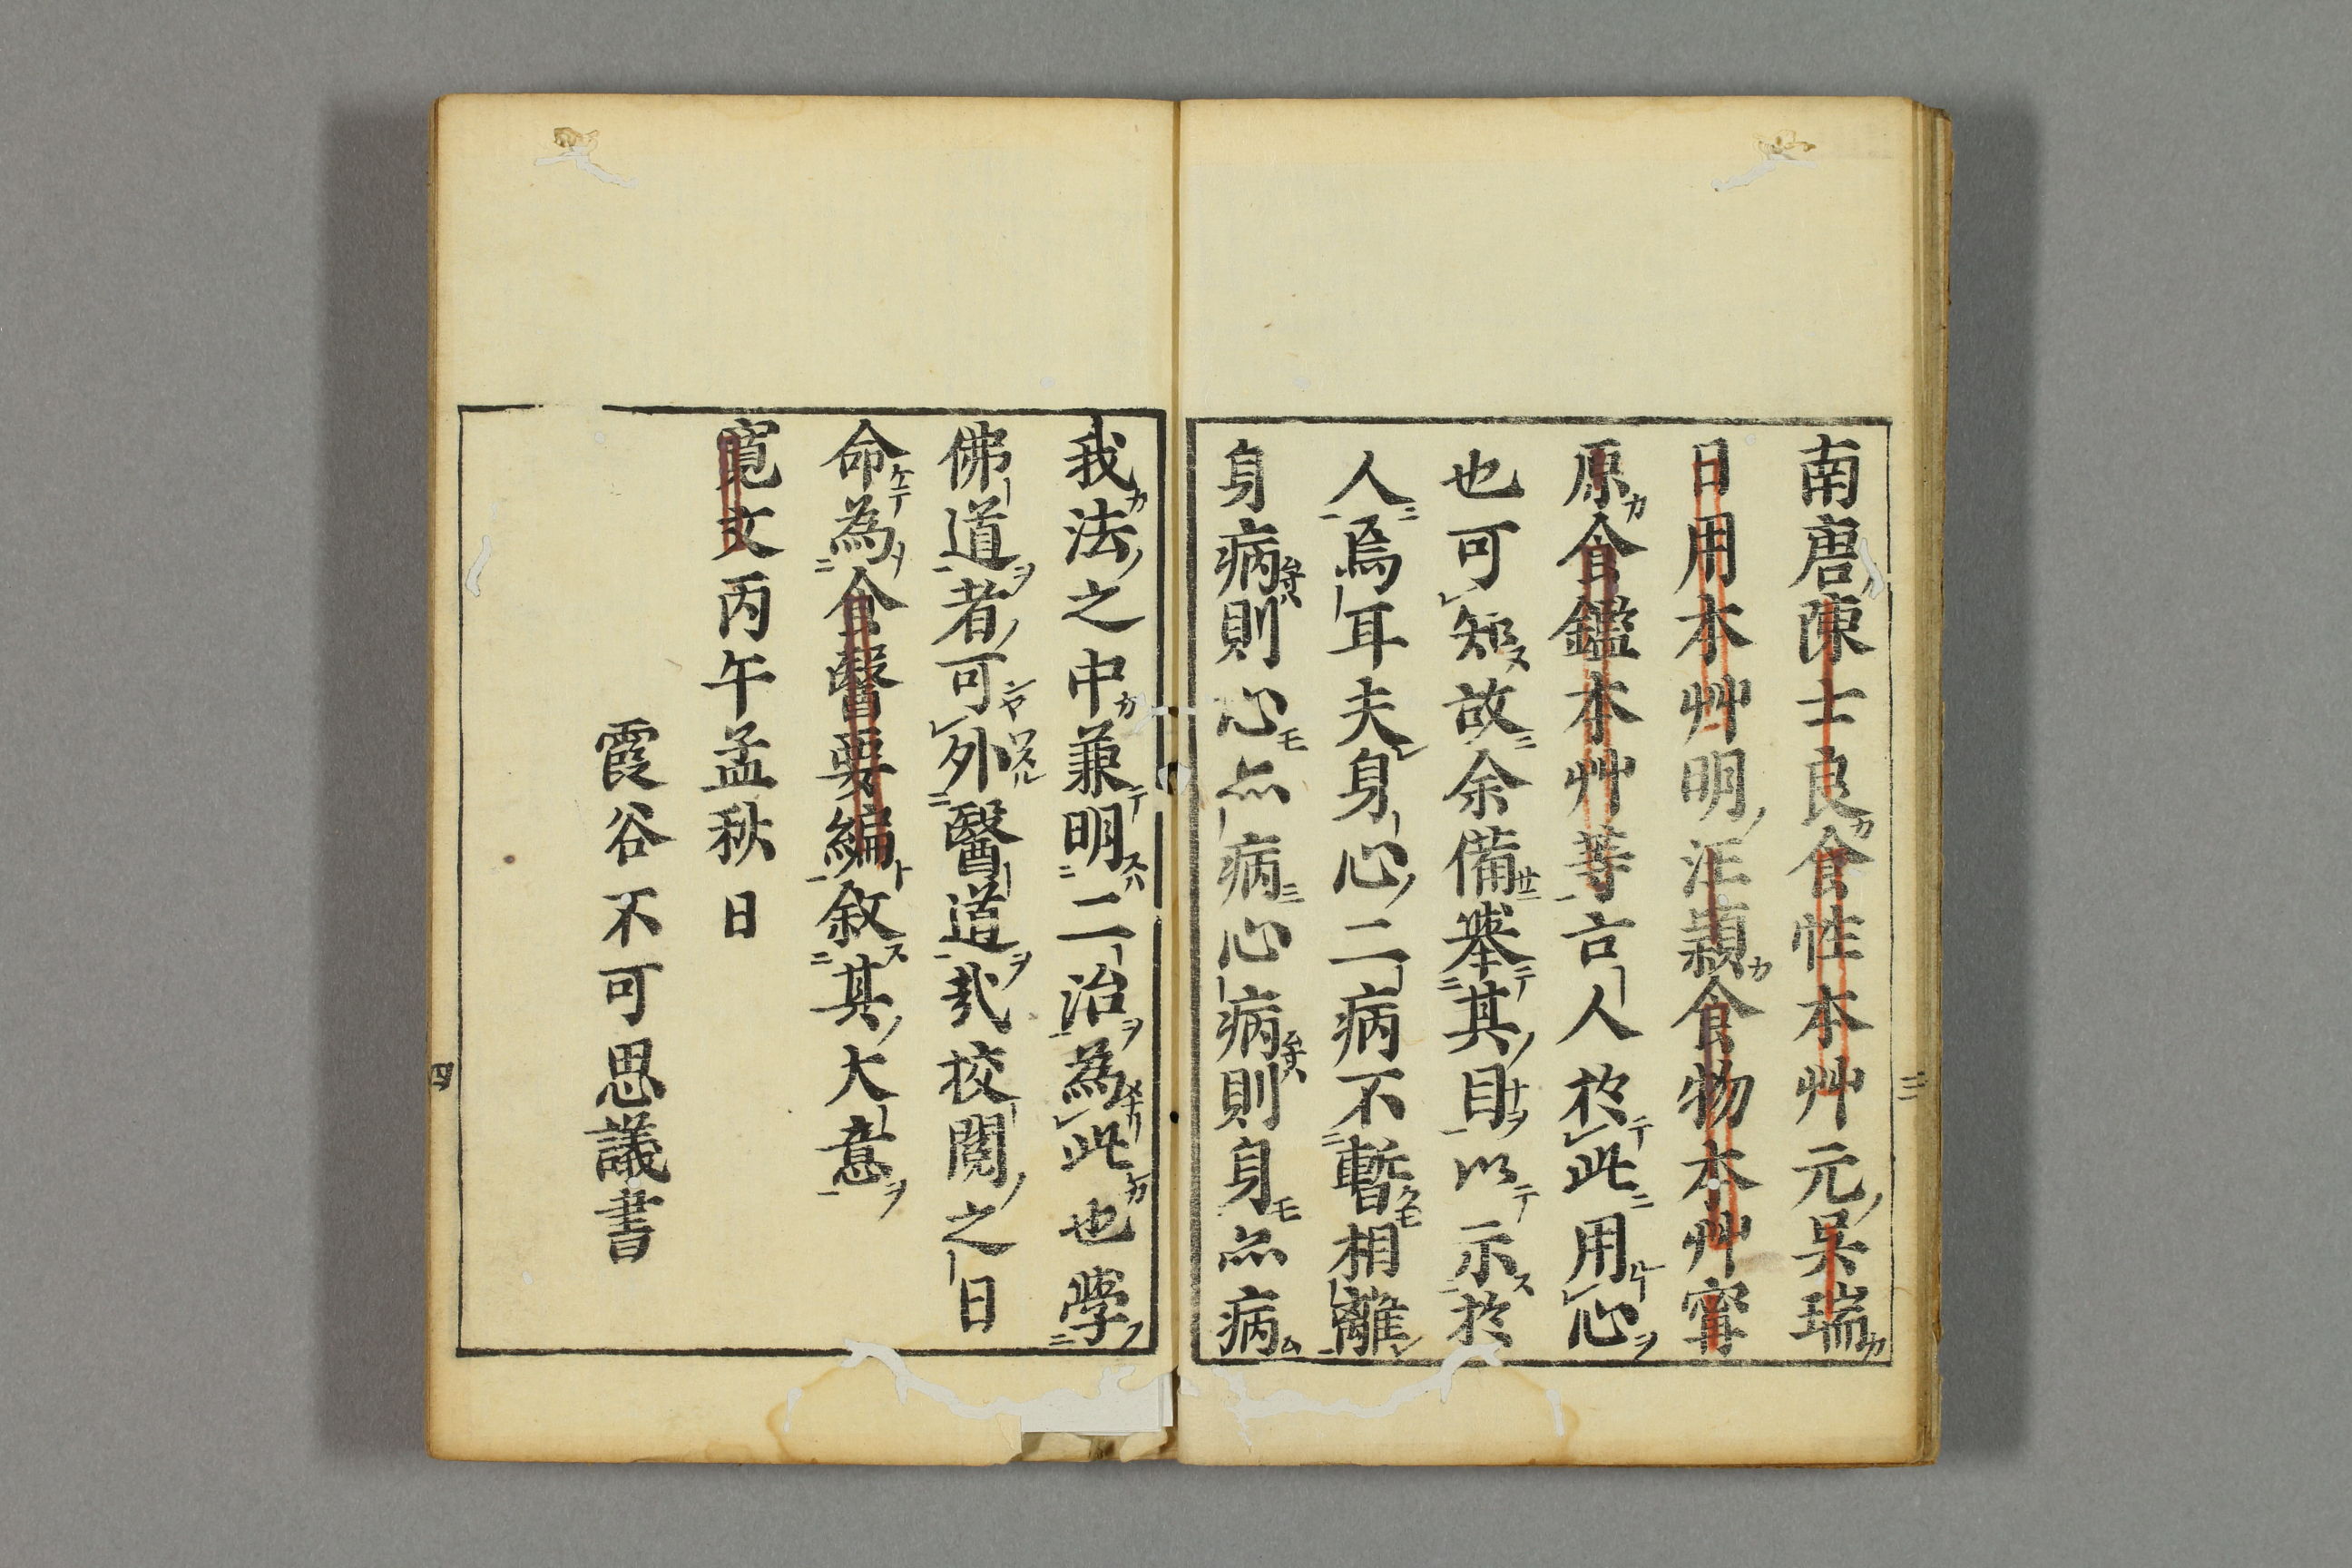 南唐陳士良食性本艸元吳瑞
日用本艸明汪穎食物本艸甯
原食鑑本艸等言人於此用心
也可知故余備舉其目以示於
人焉耳夫身心二病不暫相離
身病則心亦病心病則身亦病
三
我法之中兼明二治為此也学
佛道者可外醫道哉挍閲之日
命為食醫要編敘其大意
寛文丙午孟秋日
霞谷不可思議書
四